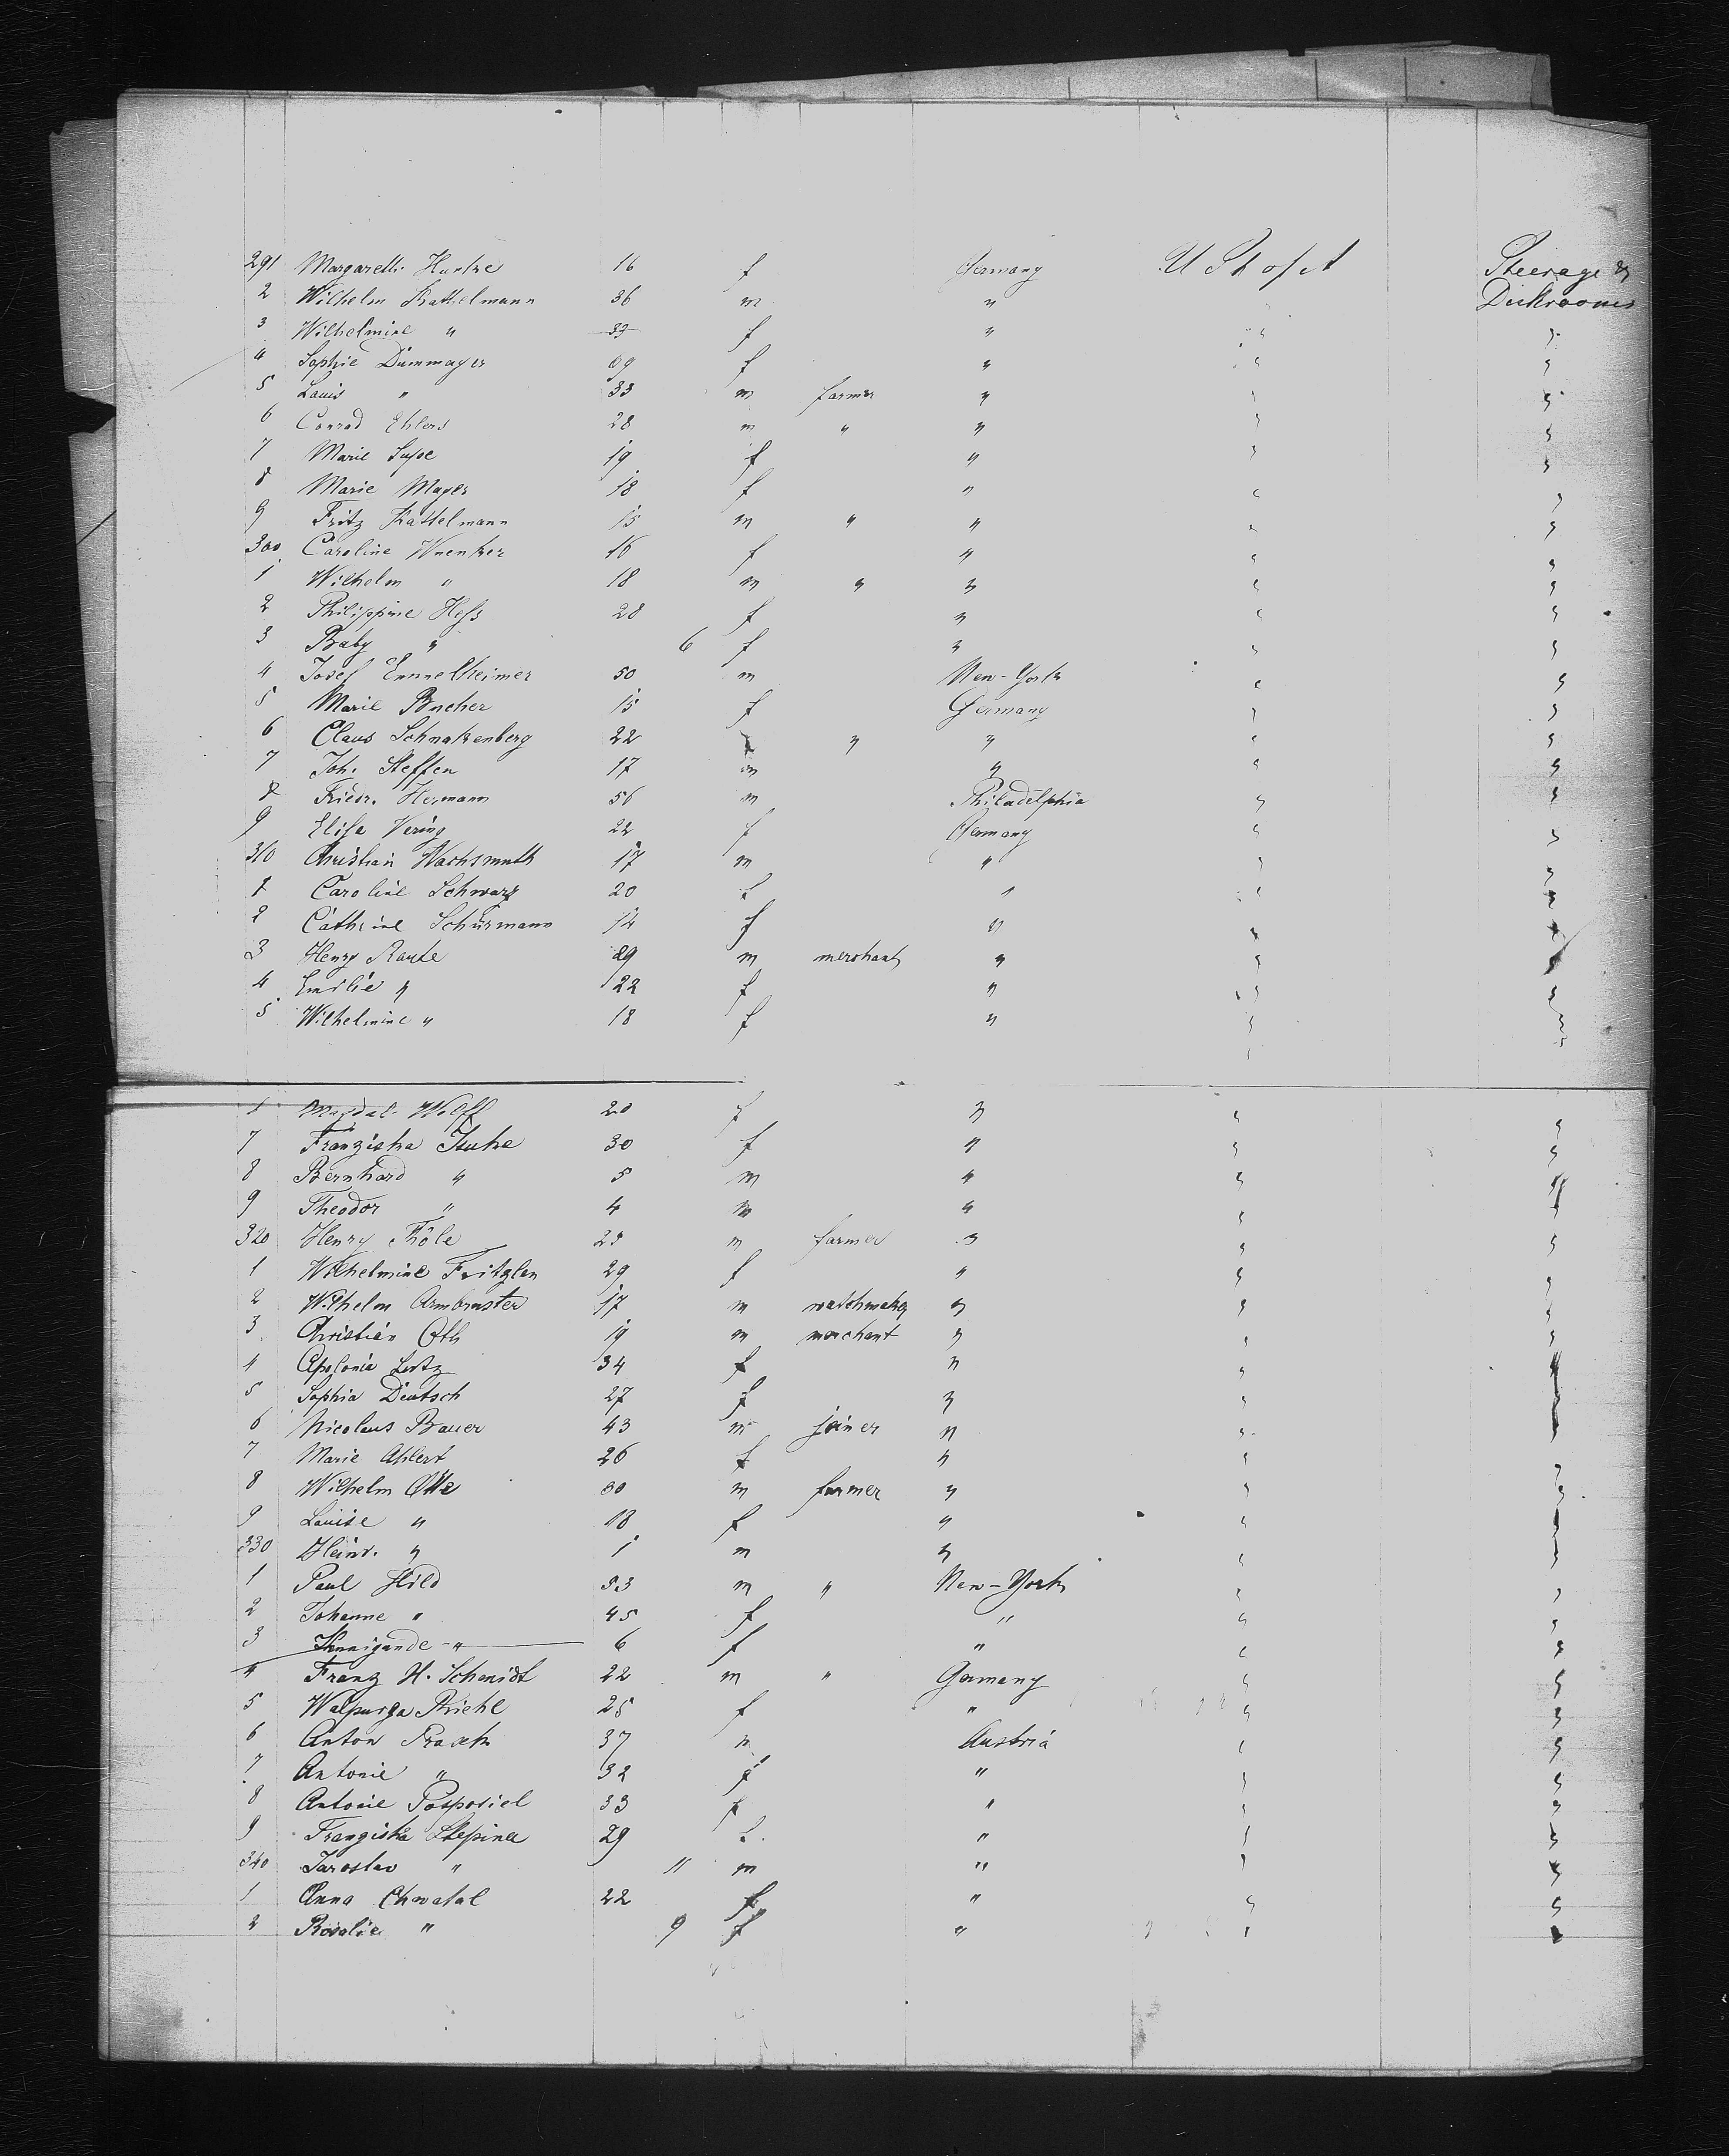 291 Margareth Huntze 16 f Germany U St of A Steerage &
2 Wilhelm Kattelmann 36 m " Deckrooms
3 Wilhelmine " 33 f " " "
4 Sophie Dammayer 69 f " " "
5 Louis " 33 m farmer " " "
6 Conrad Ehlers 28 m " " " "
7 Marie 19 f " " "
8 Marie Mayer 18 f " " "
9 Fritz Kattelmann 15 m " " " "
300 Caroline Wuenker 16 f " " "
1 Wilhelm " 18 m " " " "
2 Philippine Hess 28 f " " "
3 Baby " 6 f " " "
4 Josef Emmelheimer 50 m New-York " "
5 Marie Bucher 15 f Germany " "
6 Claus Schnakenberg 22 " " " "
7 Joh. Steffen 17 m " " "
8 Friedr. Hermann 56 m Philadelphia " "
9 Elise Vering 22 f Germany " "
310 Christian Wachsmuth 17 m " " "
1 Caroline Schwarz 20 f " " "
2 Cathrine Schürmann 14 f " " "
3 Henry Raute 29 m merchant " " "
4 Emilie " 22 f " " "
5 Wilhelmine " 18 f " " "
Magdal. Wolff 20 f " " "
7 Franziska 30 f " " "
8 Bernhard " 5 m " " "
9 Theodor " 4 m " " "
320 Henry Föle 23 m farmer " " "
1 Wilhelmine Fritzlen 29 f " " "
2 Wilhelm Armbruster 17 m watchmaker " " "
3 Christian Oth 19 m merchant " " "
4 Apolonia Lutz 34 f " " "
5 Sophia Deutsch 27 f " " "
6 Nicolaus Bauer 43 m joiner " " "
7 Marie Ahlert 26 f " " "
8 Wilhelm Otte 30 m farmer " " "
9 Louise " 18 f " " "
330 Heinr. " 1 m " " "
1 Paul Hild 53 m " New-York " "
2 Johanne " 45 f " " "
3 Kunigunde " 6 f " " "
4 Franz H. Schmidt 22 m " Germany " "
5 Walpurga Riehl 25 f " " "
6 Anton Prasch 37 m Austria " "
7 Antonie " 32 f " " "
8 Antonie Posposiel 33 f " " "
9 Franziska Stepina 29 f " " "
340 Jaroslav " 11 m " " "
1 Anna Chwatal 22 f " " "
2 Rosalie " 9 f " " "